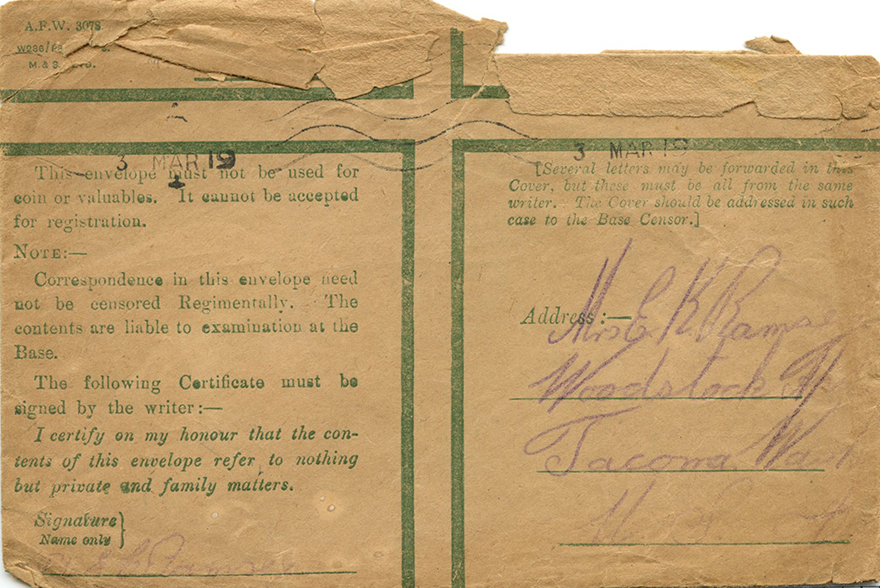 A.F.W. 3078
M. & S.
3 MAR 19
This envelope must not be used for
coin or valuables. It cannot be accepted
for registration.
NOTE:—
Correspondence in this envelope need
not be censored Regimentally. The
contents are liable to examination at the
Base.
The following Certificate must be
signed by the writer:—
I certify on my honour that the con-
tents of this envelope refer to nothing
but private and family matters.
Signature
Name only
3 MAR 19
[Several letters may be forwarded in this
Cover, but these must be all from the same
writer. The Cover should be addressed in such
case to the Base Censor.]
Address:—
Mrs E. K. Ramsey
Woodstock
Tacoma Wash